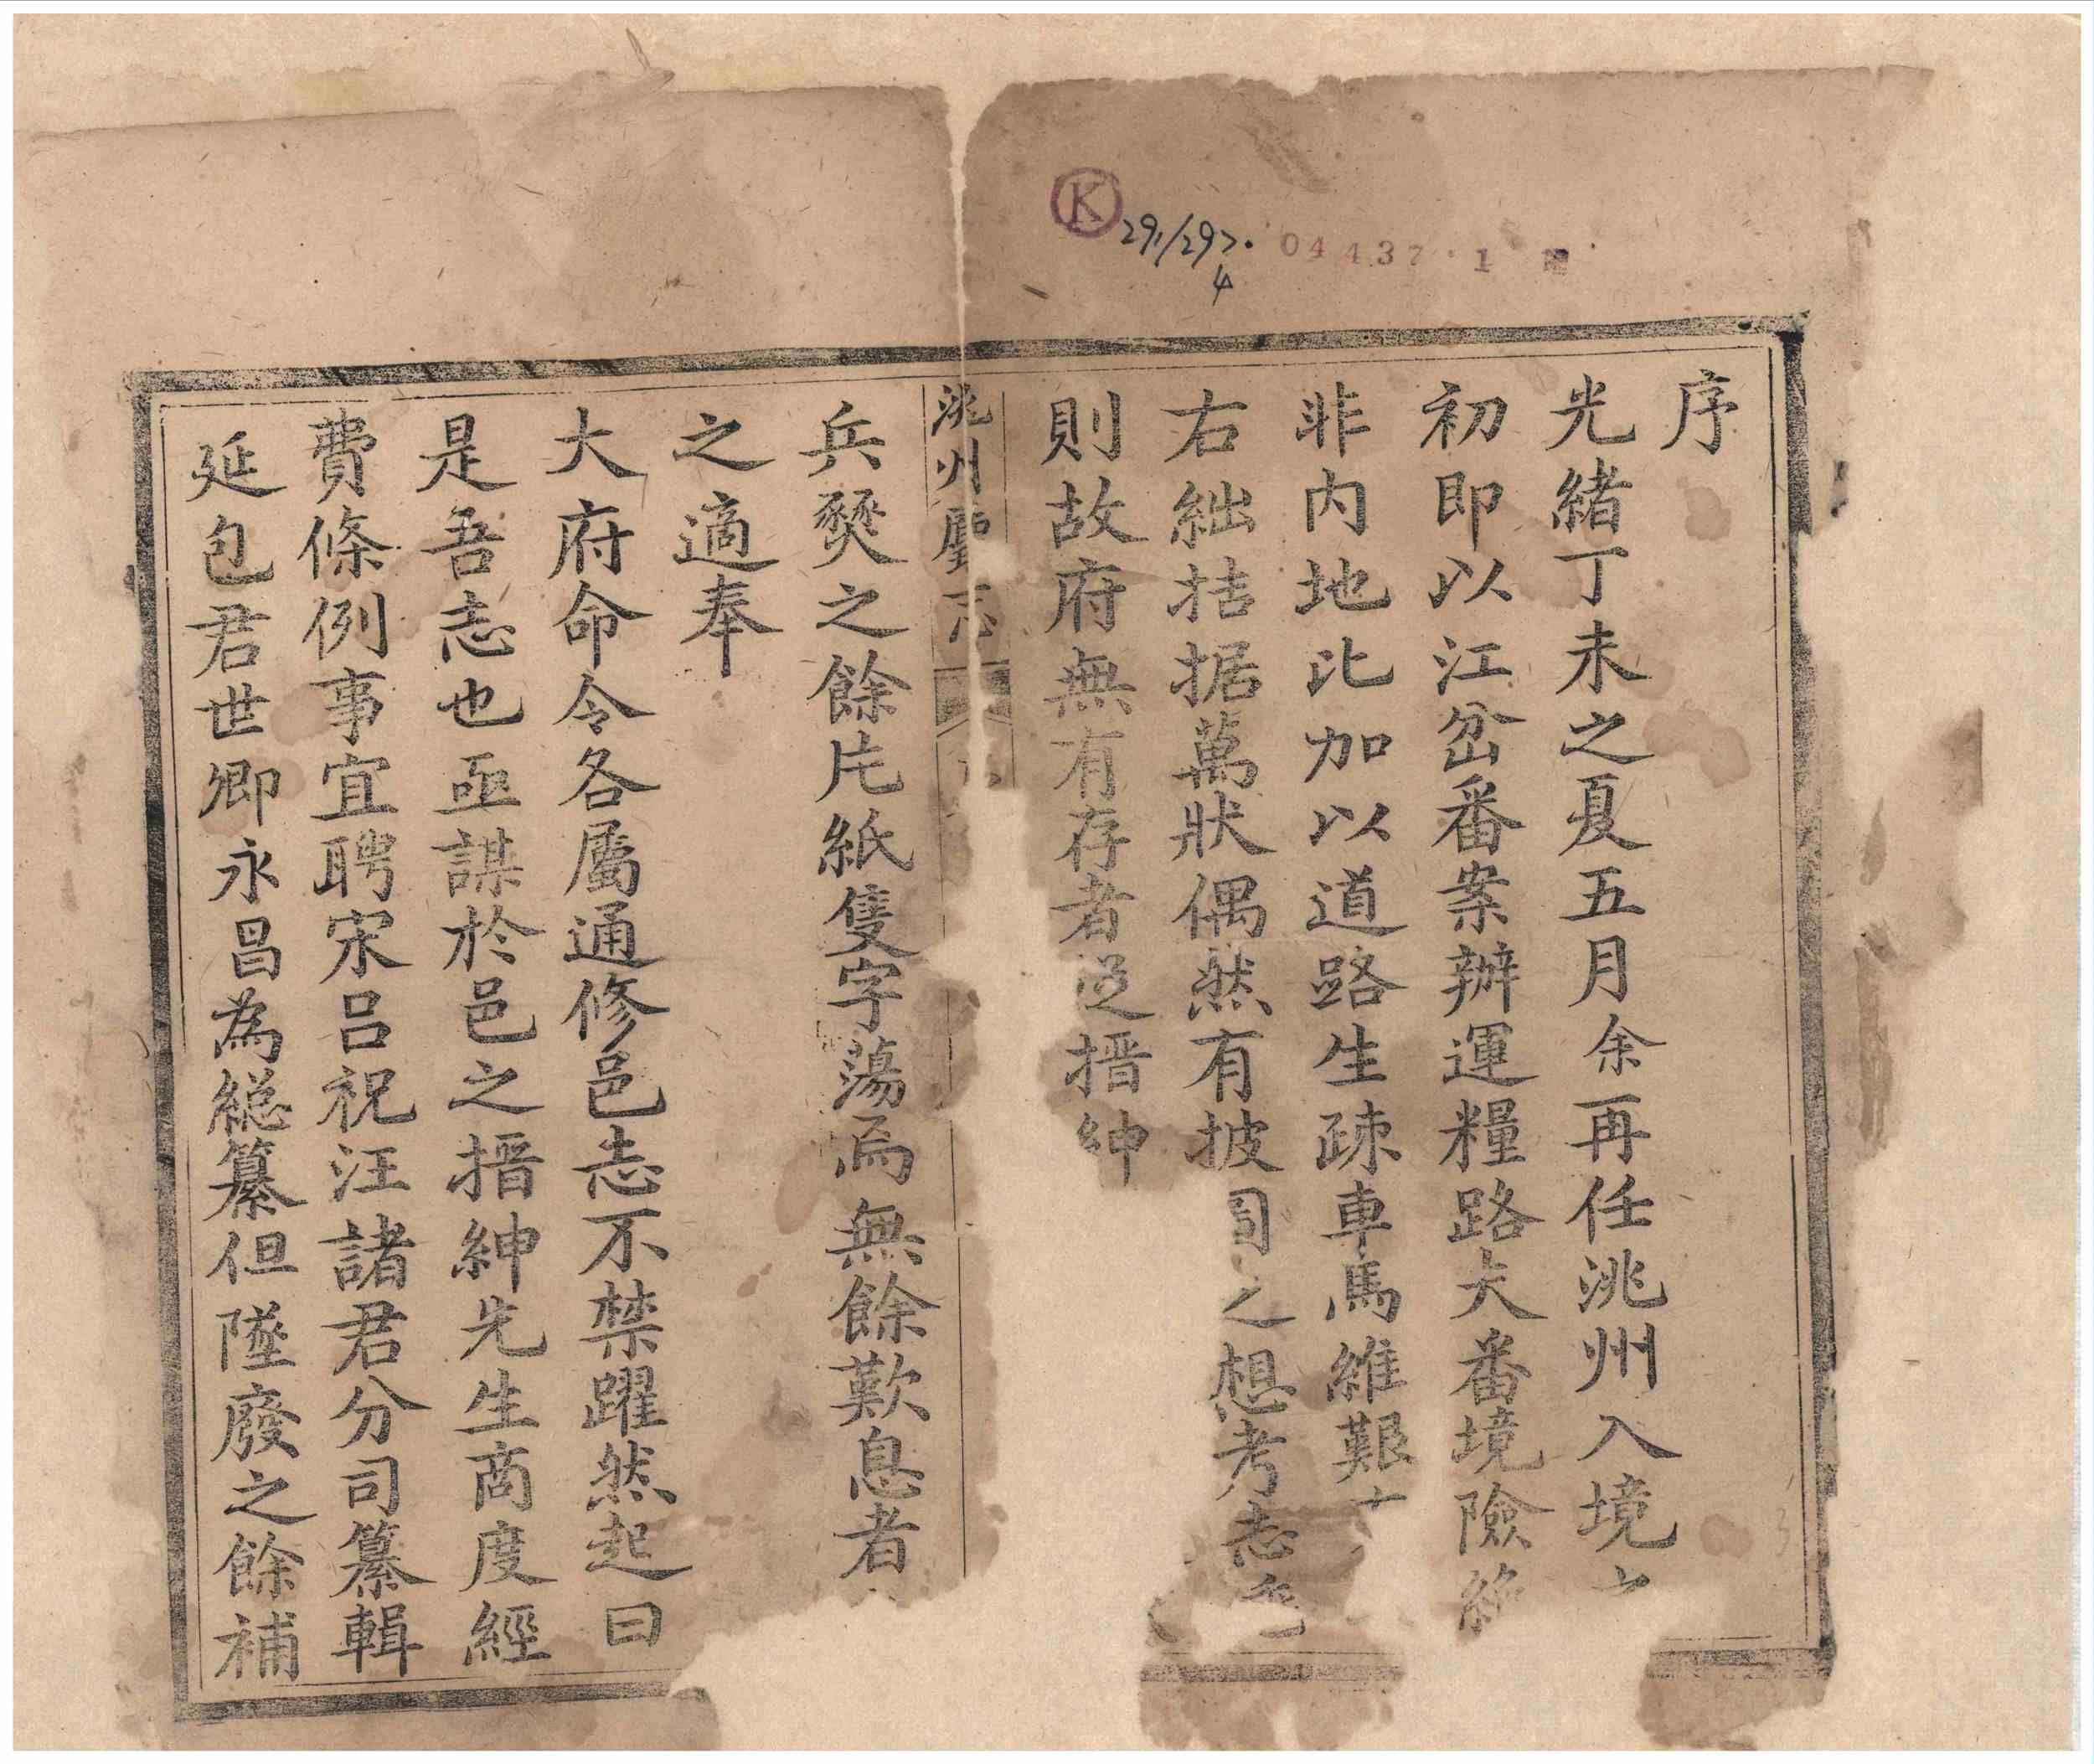 K
291/297.
4
04437·1
序
光緒丁未之夏五月余再任洮州入境
初即以江岔番案辦運糧路大番境險絕
非内地比加以道路生疎車馬維艱
右絀拮据萬狀偶然有披之想考志
則故府無有存者搢紳
洮州廳志
兵燹之餘片紙隻字蕩焉無餘歎息者
之適奉
大府命令各屬通修邑志不禁躍然起曰
是吾志也亟謀於邑之搢紳先生商度經
費條例事宜聘宋呂祝汪諸君分司纂輯
延包君世卿永昌為縂纂但墜廢之餘補